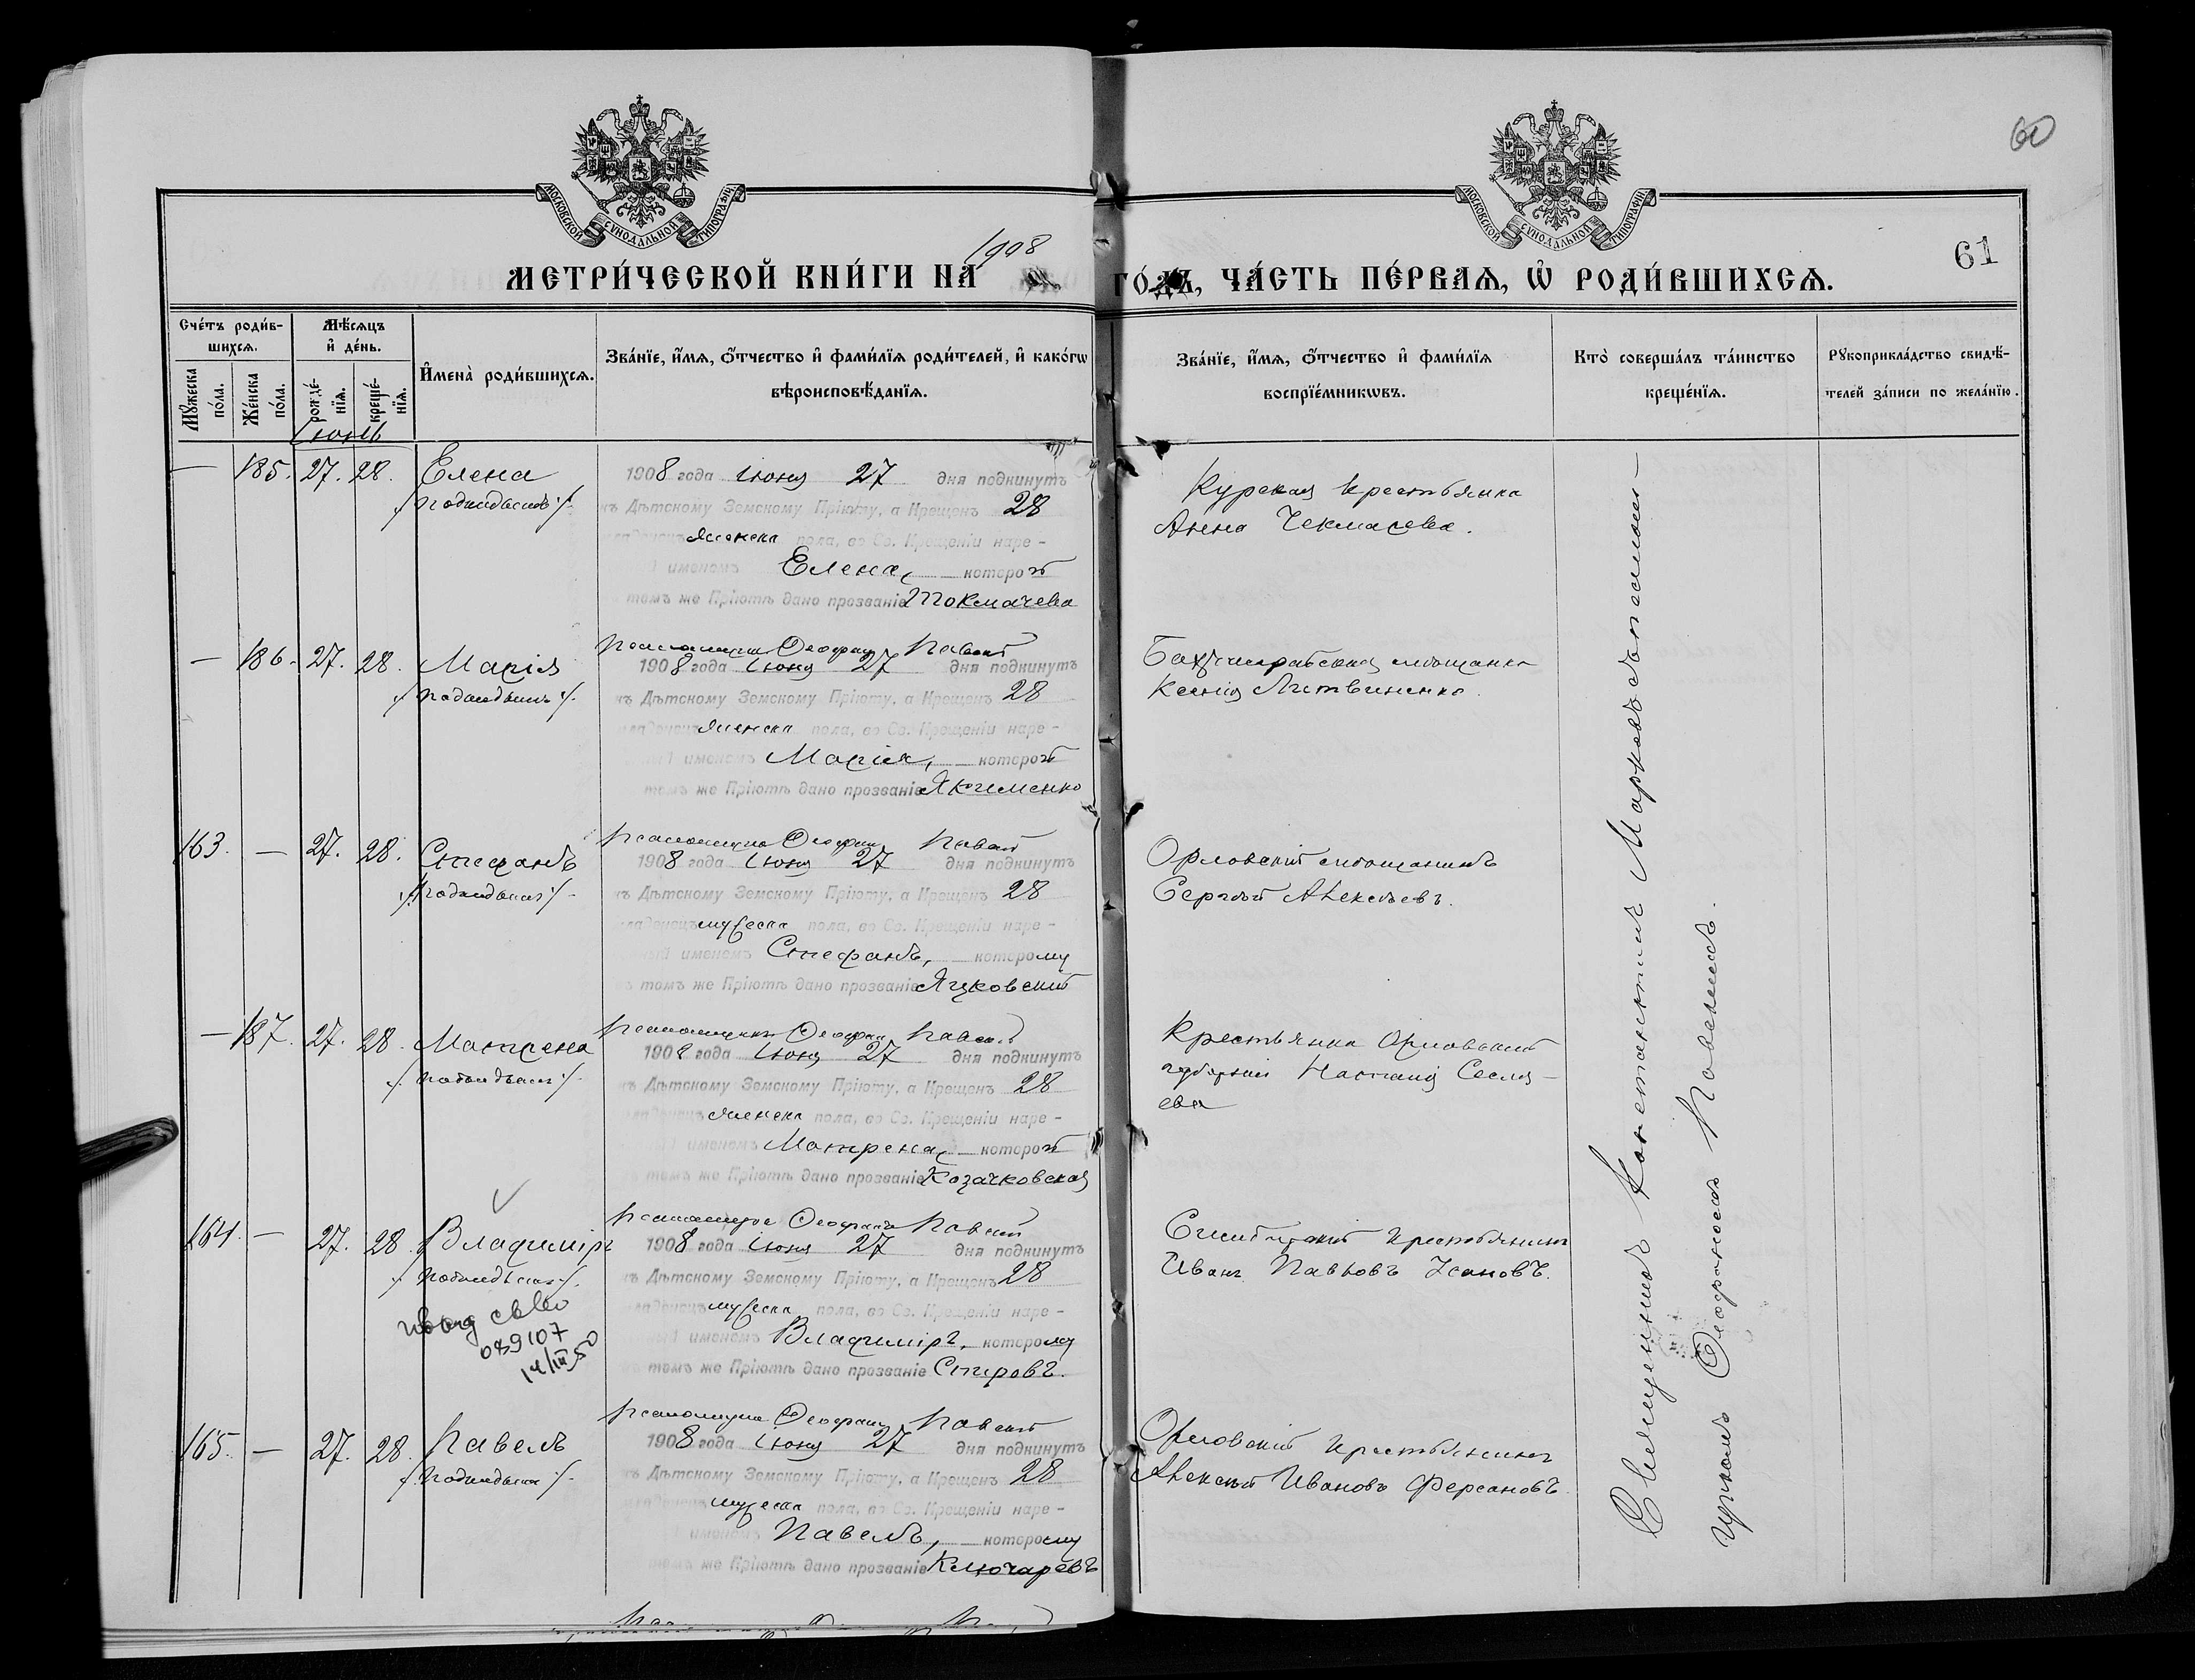 60
МОСКОВСКОЙ СѴНОДАЛЬНОЙ ТИПОГРАФІИ.
МОСКОВСКОЙ СѴНОДАЛЬНОЙ ТИПОГРАФІИ.
61
МЕТРИ́ЧЕСКОЙ КНИ́ГИ НА 1908 ГО́ДЪ, ЧА́СТЬ ПЕ́РВАѦ, Ѡ҆ РОДИ́ВШИХСѦ.
Сче́тъ роди́в-
шихсѧ.
Мꙋ́жеска по́ла.
Же́нска по́ла.
Мѣ́сѧцъ
и҆ де́нь.
рожде́-нїѧ.
креще́-нїѧ.
И҆мена̀ роди́вшихсѧ.
Зва́нїе, и҆́мѧ, ѻ҆́тчество и҆ фами́лїѧ роди́телей, и҆ како́гѡ
вѣроисповѣ́данїѧ.
Зва́нїе, и҆́мѧ, ѻ҆́тчество и҆ фами́лїѧ
воспрїе́мникѡвъ.
Кто̀ соверша́лъ та́инство
креще́нїѧ.
Рꙋкоприкла́дство свидѣ́-
телей за́писи по жела́нїю.
Іюнь
— 185. 27. 28. Елена
/. подкидышъ ./.
1908 года Іюня 27 дня подкинутъ
къ Дѣтскому Земскому Пріюту, а Крещенъ 28
младенецъ женска пола, во Св. Крещеніи наре-
именемъ Елена, которой
томъ же Пріютѣ дано прозваніе Токмачева
Курская крестьянка
Анна Чекмасева.
— 186. 27. 28. Марія
/. подкидышъ ./.
1908 года Іюня 27 дня подкинутъ
къ Дѣтскому Земскому Пріюту, а Крещенъ 28
младенецъ женска пола, во Св. Крещеніи наре-
именемъ Марія, которой
томъ же Пріютѣ дано прозваніе Якименко
Бахчисарайская мѣщанка
Ксенія Литвиненко.
163. — 27. 28. Стефанъ
/. подкидышъ ./.
1908 года Іюня 27 дня подкинутъ
къ Дѣтскому Земскому Пріюту, а Крещенъ 28
младенецъ мужеска пола, во Св. Крещеніи наре-
ный именемъ Стефанъ, которому
томъ же Пріютѣ дано прозваніе Яцковскій
Орловскій мѣщанинъ
Сергѣй Алексѣевъ.
— 187. 27. 28. Матрена
/. подкидышъ ./.
1908 года Іюня 27 дня подкинутъ
къ Дѣтскому Земскому Пріюту, а Крещенъ 28
женска пола, во Св. Крещеніи наре-
именемъ Матрена, которой
томъ же Пріютѣ дано прозваніе Козачковская
Крестьянка Орловской
губерніи
164. — 27. 28. Владиміръ
/. подкидышъ ./.
089107
14/III 50
1908 года Іюня 27 дня подкинутъ
къ Дѣтскому Земскому Пріюту, а Крещенъ 28
младенецъ мужеска пола, во Св. Крещеніи наре-
ный именемъ Владиміръ, которому
томъ же Пріютѣ дано прозваніе Спировъ.
Симбирскій крестьянинъ
Иванъ Павловъ
165. — 27. 28. Павелъ
/. подкидышъ ./.
1908 года Іюня 27 дня подкинутъ
къ Дѣтскому Земскому Пріюту, а Крещенъ 28
мужеска пола, во Св. Крещеніи наре-
именемъ Павелъ, которому
томъ же Пріютѣ дано прозваніе Ключаревъ
Орловскій крестьянинъ
Алексѣй Ивановъ Ферсановъ.
Священникъ Константинъ Марковъ съ псалом-
щикомъ